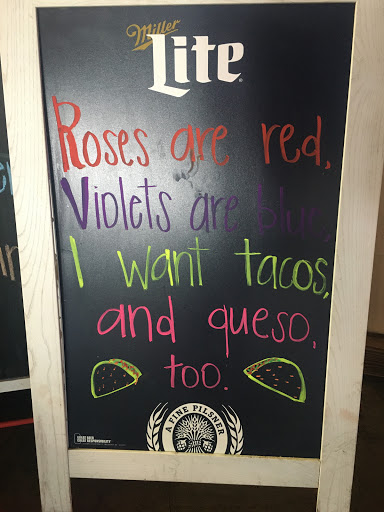 Miller
Lite
Roses are red,
Violets are blue,
I want tacos,
and queso,
too.
A FINE PILSNER